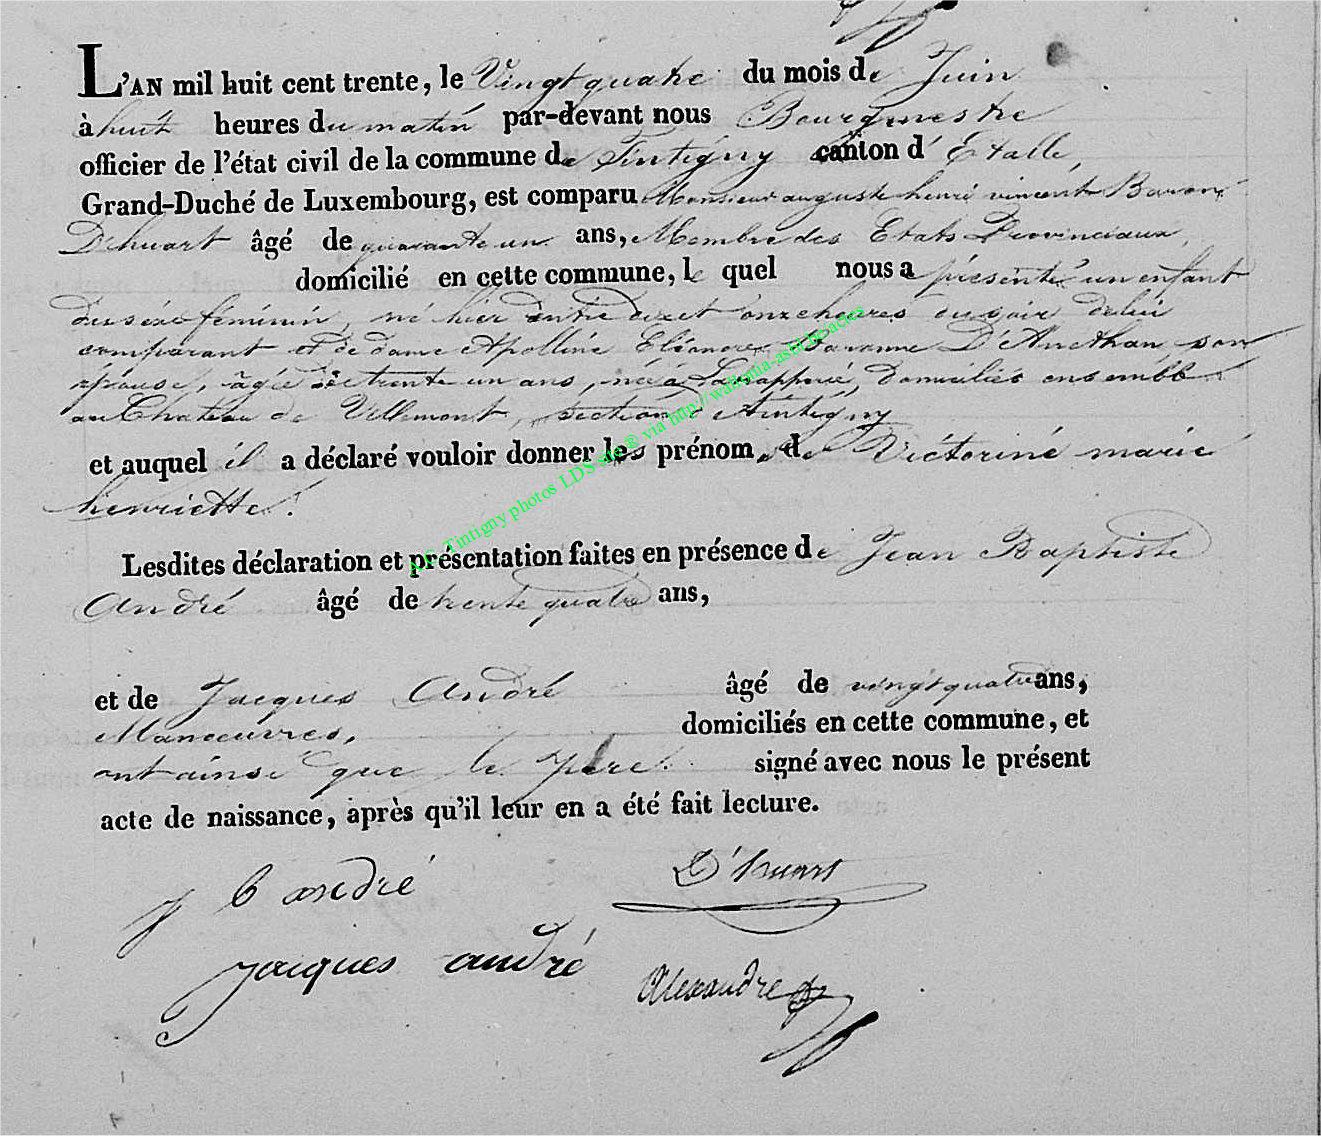 L'AN mil huit cent trente, le Vingt quatre du mois de Juin
à huit heures du matin par-devant nous Bourgmestre
officier de l'état civil de la commune de Tintigny canton d' Etalle,
Grand-Duché de Luxembourg, est comparu Monsieur auguste henri vincent Baron
D'huart âgé de quarante un ans, Membre des Etats Provinciaux,
domicilié en cette commune, le quel nous a présenté un enfant
du sexe féminin, né hier entre dix et onze heures du soir de lui
comparant et de dame Apolline Eléonore Baronne D'Anethan son
épouse, âgée de trente un ans, née à domiciliés ensemble
au Chateau de Villemont, section de tintigny
et auquel il a déclaré vouloir donner les prénoms de Victorine marie
henriette.
Lesdites déclaration et présentation faites en présence de Jean Baptiste
André âgé de trente quatre ans,
et de Jacques André âgé de vingt quatre ans,
Manoeuvres, domiciliés en cette commune, et
ont ainsi que le père signé avec nous le présent
acte de naissance, après qu'il leur en a été fait lecture.
J b andré
D'huart
jacques andré
Alexandre
A.E. Tintigny photos LDS site® via http://wallonia-asbl.be/actes